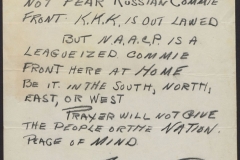 NOT FEAR RUSSIAN COMMIE
FRONT. K.K.K. IS OUT LAWED
BUT N.A.A.C.P. IS A
LEAGUEIZED COMMIE
FRONT HERE AT HOME
BE IT. IN THE SOUTH, NORTH,
EAST, OR WEST
PRAYER WILL NOT GIVE
THE PEOPLE OR THE NATION.
PEACE OF MIND